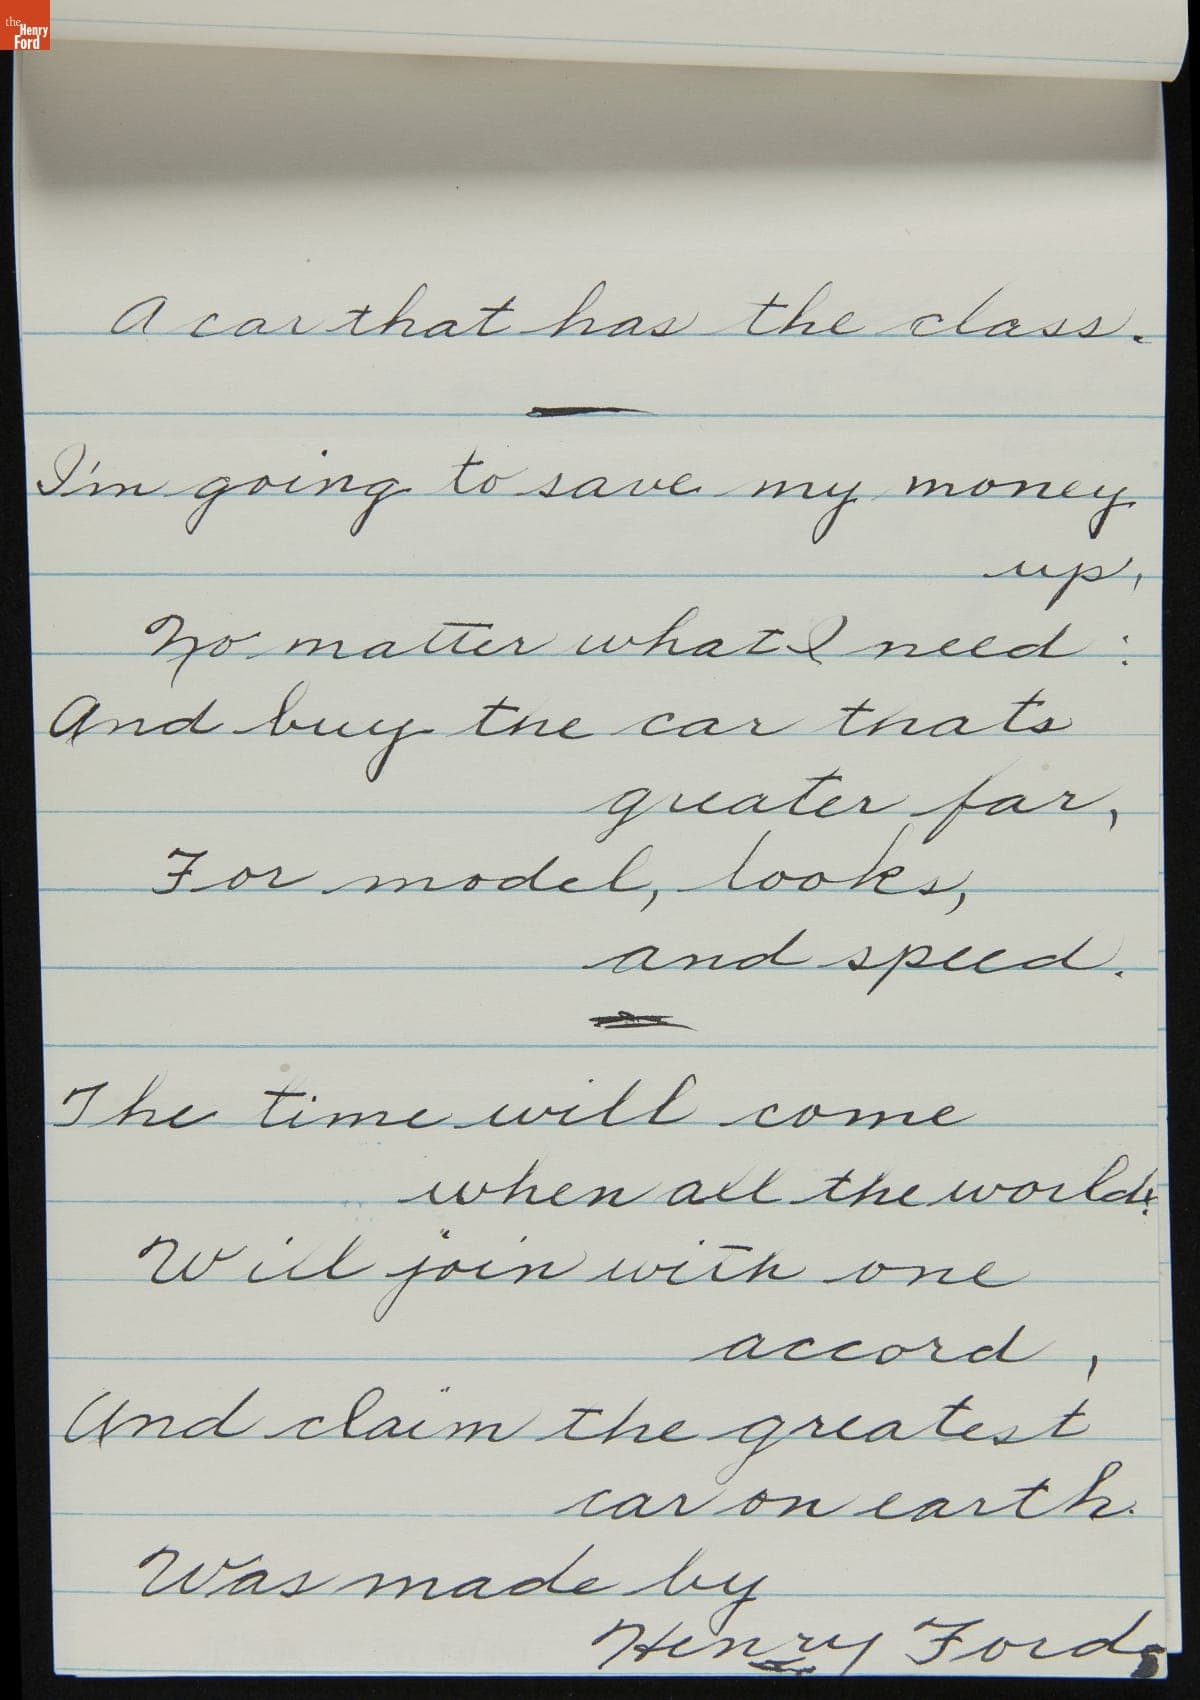 the
Henry
Ford
A car that has the class.
I'm going to save my money
up,
No matter what I need :
And buy the car thats
greater far,
For model, looks,
and speed.
The time will come
when all the world,
Will join with one
accord ,
And claim the greatest
car on earth.
Was made by
Henry Ford,